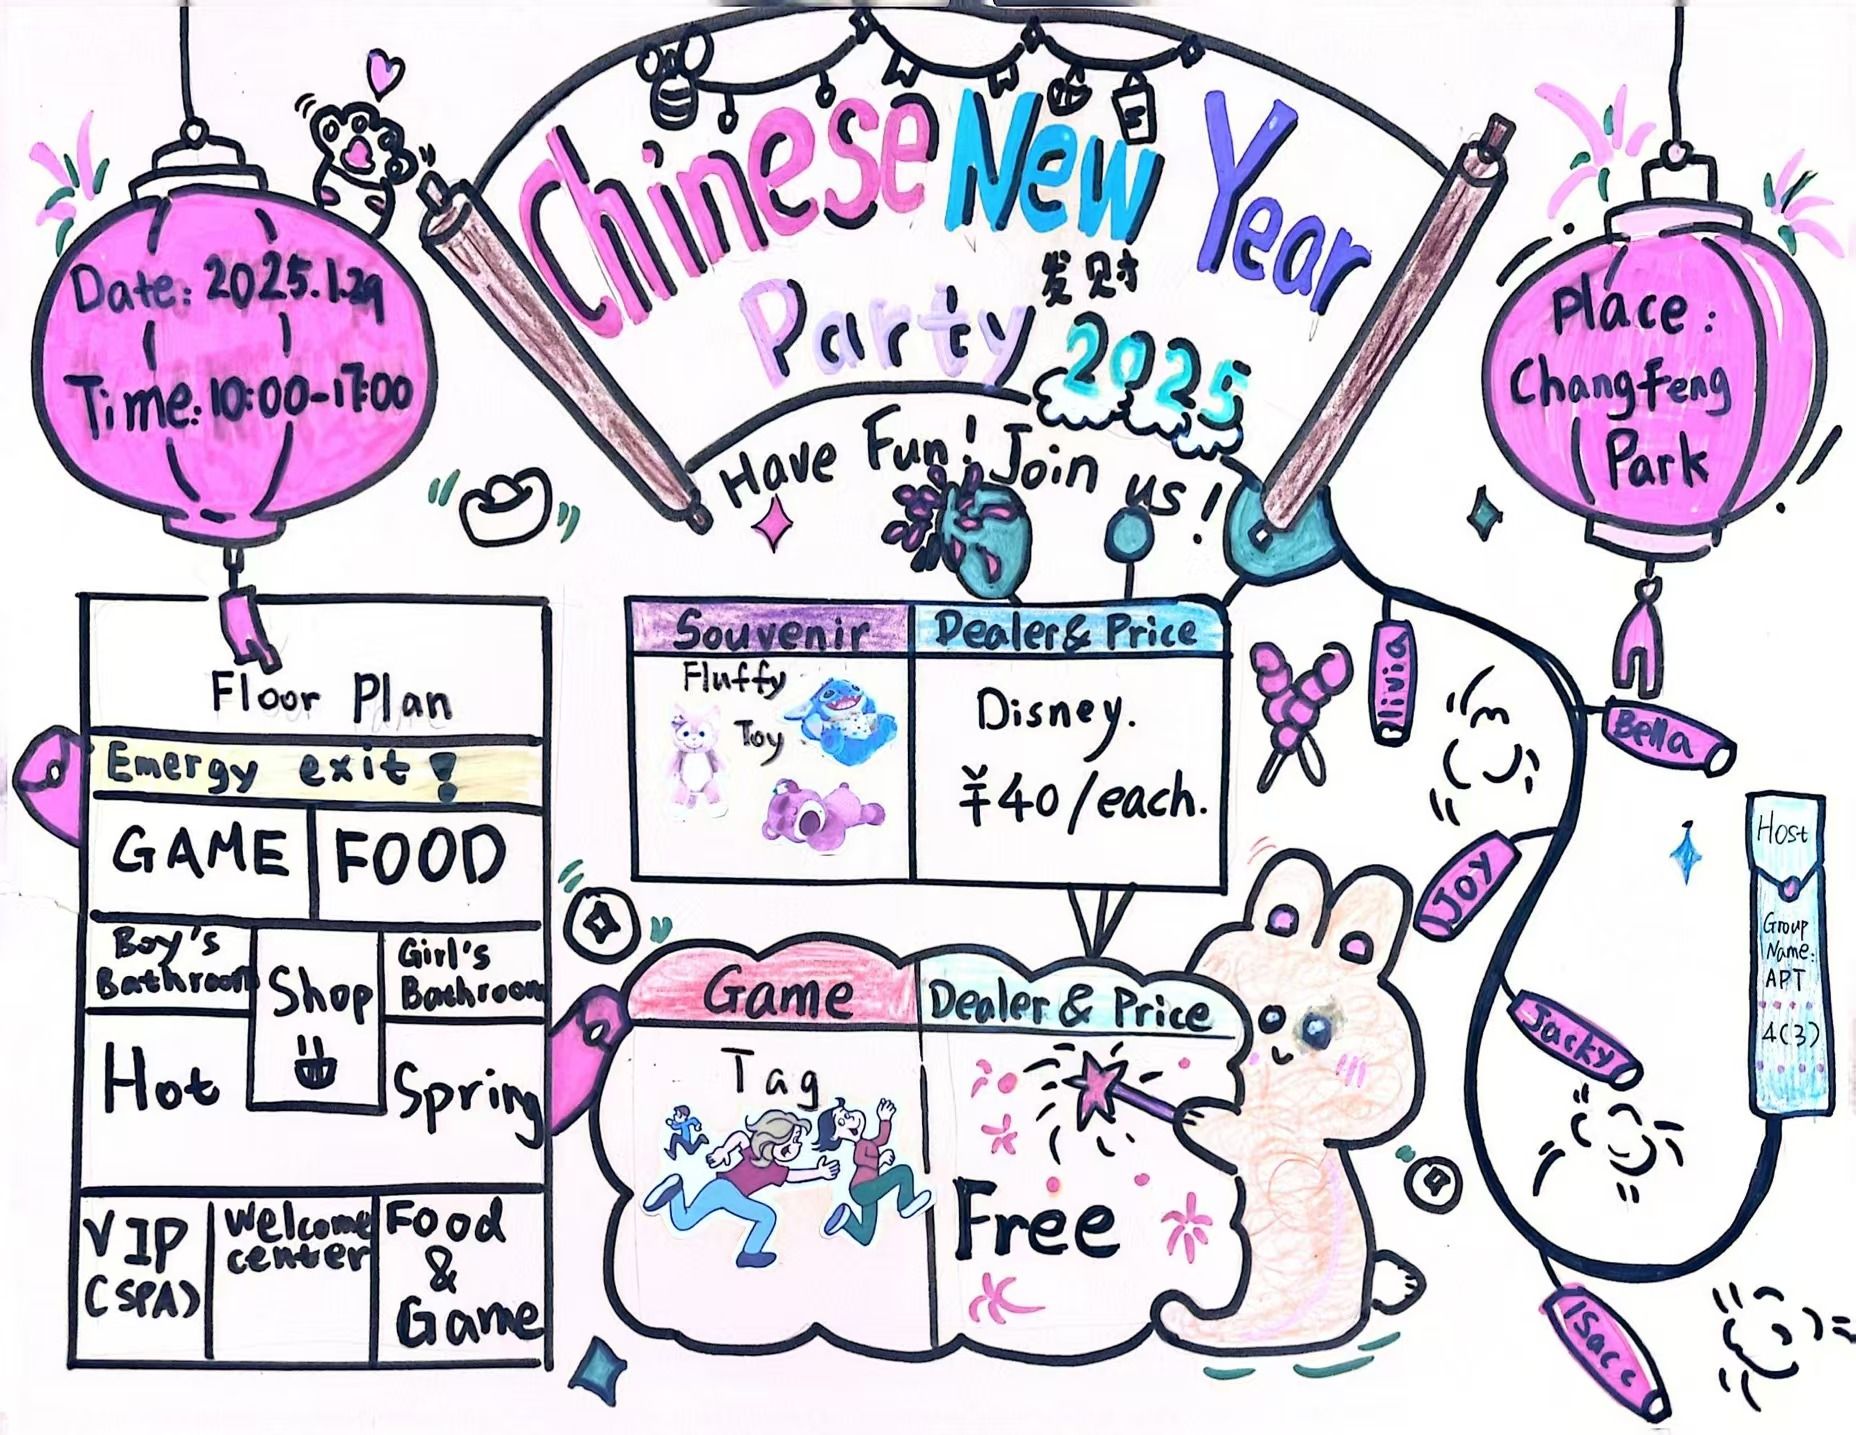 Chinese New Year
Party
发财
2025
Have Fun! Join us!
Date: 2025.1.29
Time: 10:00-17:00
Place:
Changfeng
Park
Floor Plan
Emergy exit!
GAME
FOOD
Boy's
Bathroom
Shop
Girl's
Bathroom
Hot
Spring
VIP
(SPA)
Welcome
center
Food
&
Game
Souvenir
Dealer & Price
Fluffy
Toy
Disney.
¥40/each.
Game
Dealer & Price
Tag
Free
Olivia
Bella
Joy
Jacky
ISacc
Host
Group
Name:
APT
4(3)